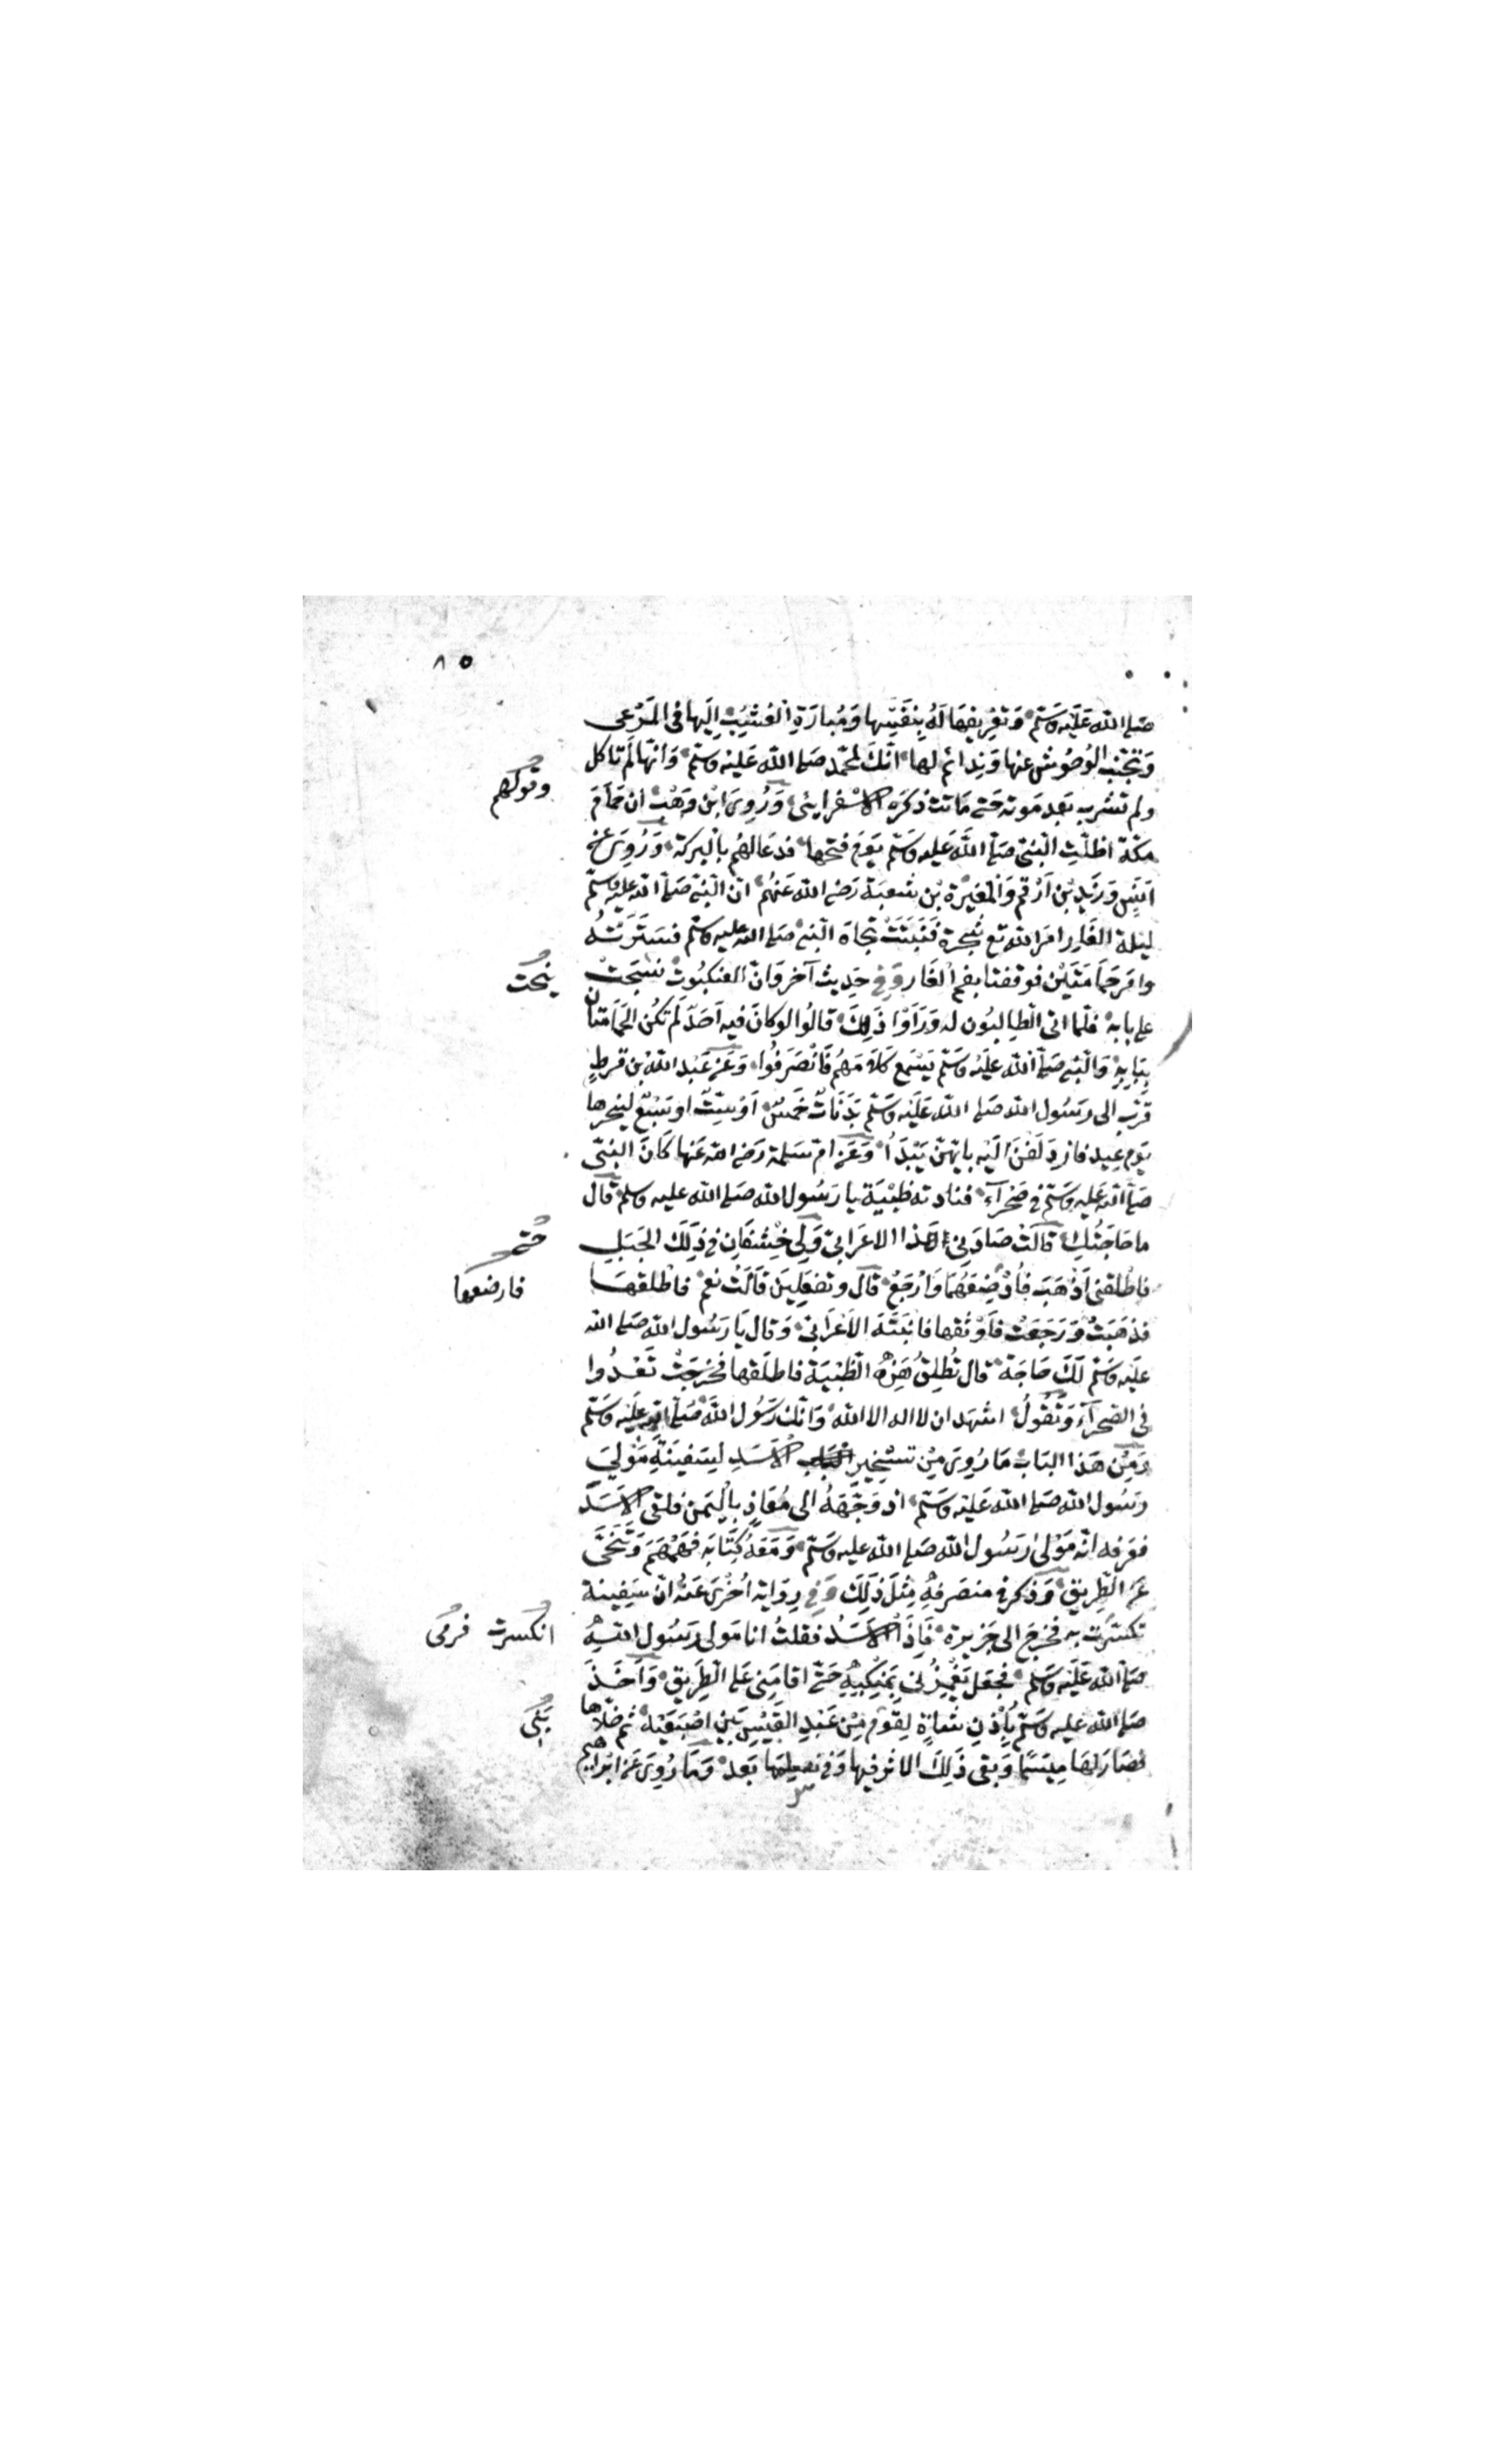 ٨٥
صلى الله عليه وسلم وتعريفها له بنفسها ومبادرة العشب إليها في المرعى
وتجنب الوحوش عنها وندائهم لها انك لمحمد صلى الله عليه وسلم وانها لم تاكل
وقولهم
ولم تشرب بعد موته حتى ماتت ذكره الاسفرايني وروى ابن وهب ان حمام
مكة اظلت النبي صلى الله عليه وسلم يوم فتحها فدعا لهم بالبركة وروي عن
انس وزيد بن أرقم والمغيرة بن شعبة رضي الله عنهم ان النبي صلى الله عليه وسلم
ليلة الغار امر الله تع شجرة فنبتت تجاه النبي صلى الله عليه وسلم فسترته
وامر حمامتين فوقفتا بفم الغار وفي حديث آخر وان العنكبوت نسجت
على بابه فلما اتى الطالبون له وراوا ذلك قالوا لو كان فيه احد لم تكن الحمامتان
ببابه والنبي صلى الله عليه وسلم يسمع كلامهم فانصرفوا وعن عبد الله بن قرط
قرب الى رسول الله صلى الله عليه وسلم بدنات خمس او ست او سبع لينحرها
يوم عيد فازدلفن اليه بايهن يبدأ وعن ام سلمة رضي الله عنها كان النبي
صلى الله عليه وسلم في صحراء فنادته ظبية يا رسول الله صلى الله عليه وسلم قال
ما حاجتك قالت صادني هذا الاعرابي ولي خشفان في ذلك الجبل
فاطلقني اذهب فأرضعهما وارجع قال وتفعلين قالت نعم فاطلقها
فارضعهما
فذهبت ورجعت فاوثقها فانتبه الاعرابي وقال يا رسول الله صلى الله
عليه وسلم لك حاجة قال تطلق هذه الظبية فاطلقها فخرجت تعدوا
في الصحراء وتقول اشهد ان لا اله الا الله وانك رسول الله صلى الله عليه وسلم
ومن هذا الباب ما روي من تسخير الاسد لسفينة مولى
رسول الله صلى الله عليه وسلم اذ وجهه الى معاذ باليمن فلقي الاسد
فعرفه انه مولى رسول الله صلى الله عليه وسلم ومعه كتابه فهمهم وتنحى
عن الطريق وذكر في منصرفه مثل ذلك وفي رواية أخرى عنه ان سفينة
تكسرت به فخرج الى جزيرة فاذا الاسد فقلت انا مولى رسول الله
انكسرت
صلى الله عليه وسلم فجعل يغمزني بمنكبه حتى اقامني على الطريق واخذ
صلى الله عليه وسلم بأذن شاة لقوم من عبد القيس بين اصبعيه ثم خلاها
فصار لها ميسما وبقي ذلك الاثر فيها وفي نسلها بعد وما روي عن ابراهيم